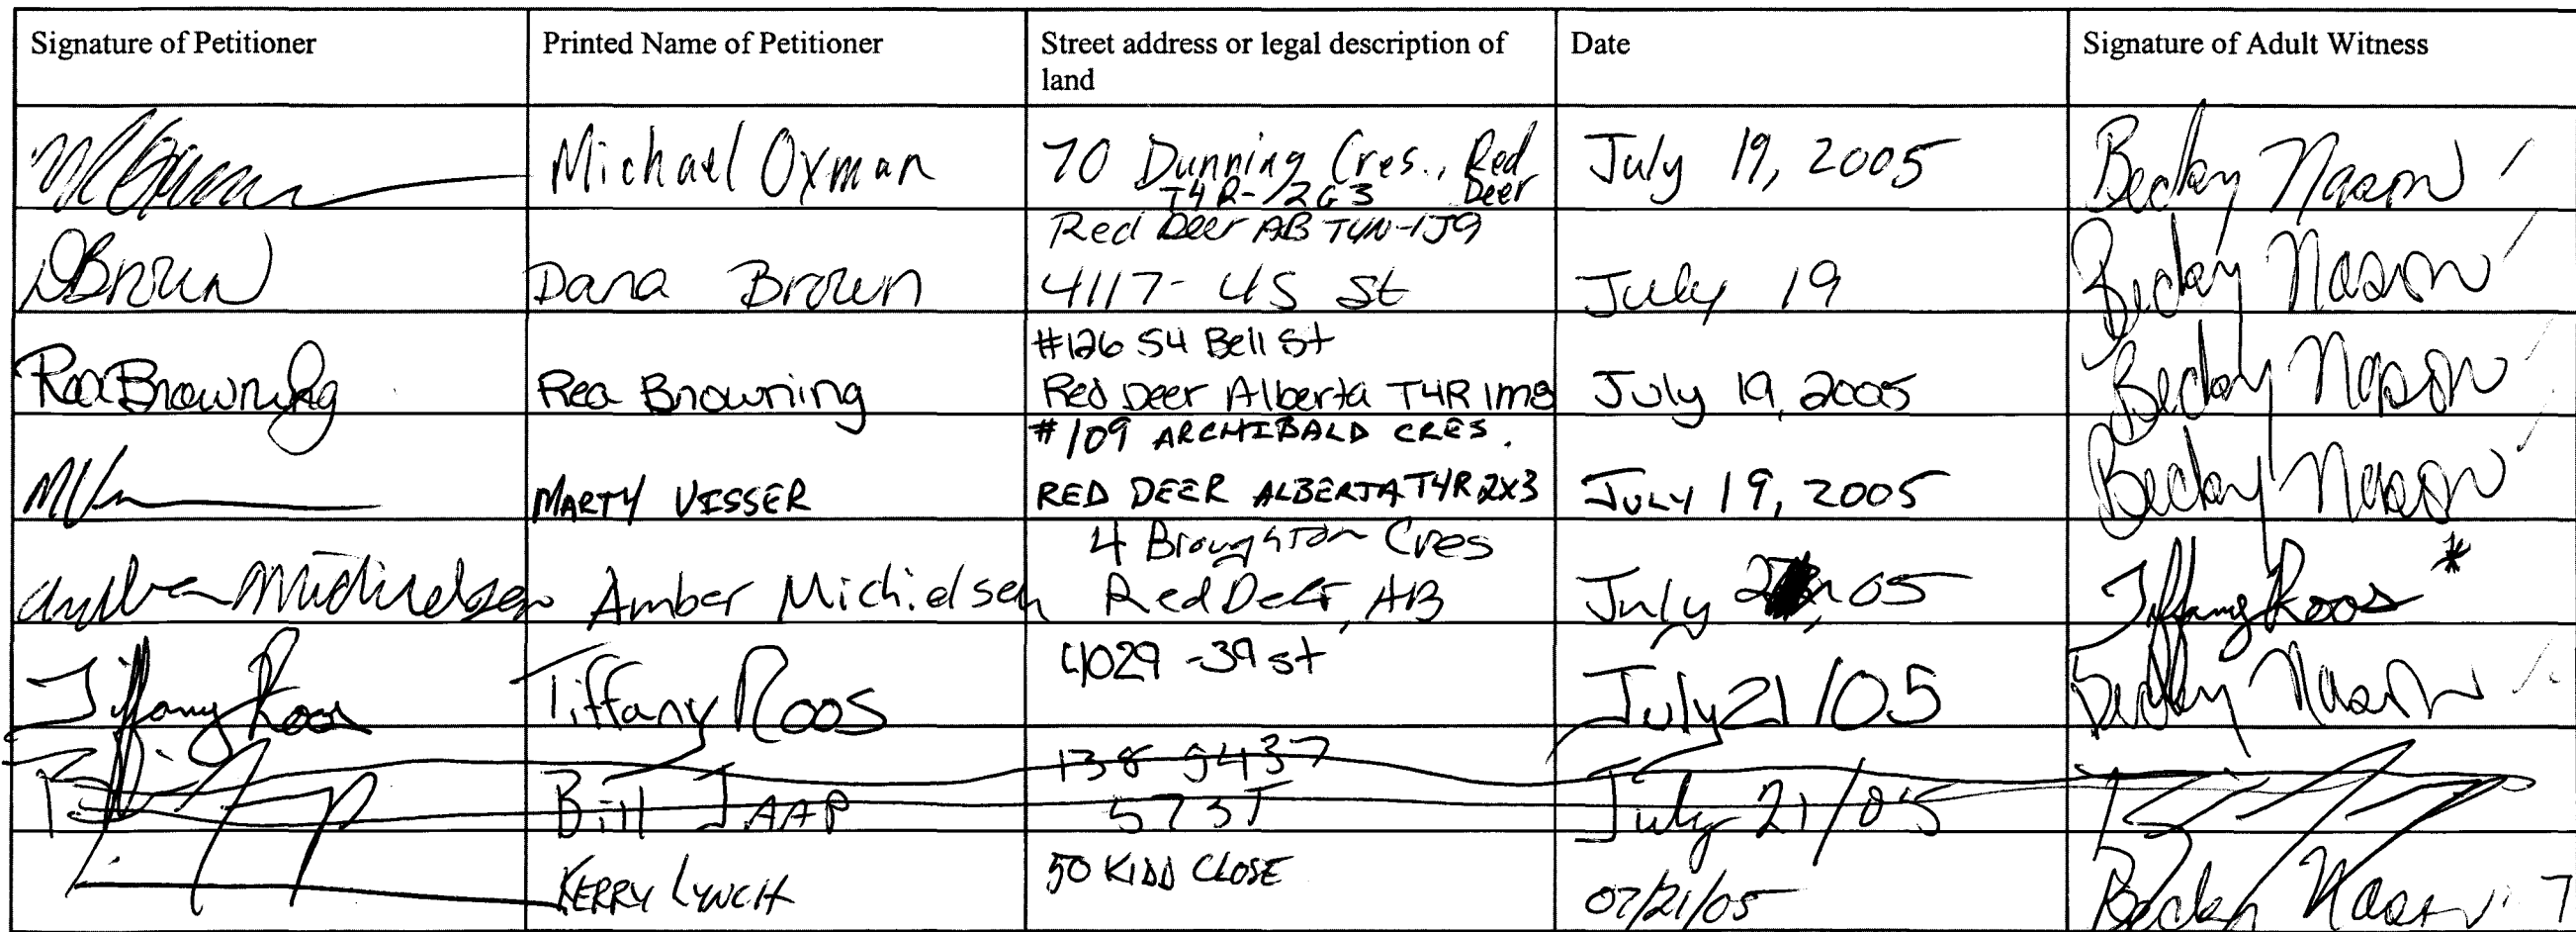 Signature of Petitioner
Printed Name of Petitioner
Street address or legal description of
land
Date
Signature of Adult Witness
Michael Oxman
70 Dunning Cres., Red
Deer
T4R-2G3
July 19, 2005
Becky Nason
DBrown
Dana Brown
Red Deer AB T4N-1J9
4117-45 St
July 19
Becky Nason
Rea Browning
Rea Browning
#126 54 Bell St
Red Deer Alberta T4R 1M8
July 19, 2005
Becky Nason
MARTY VISSER
#109 ARCHIBALD CRES.
RED DEER ALBERTA T4R 2X3
JULY 19, 2005
Becky Nason
Amber Michielsen
Amber Michielsen
4 Broughton Cres
Red Deer, AB
July 05
Tiffany Roos *
Tiffany Roos
Tiffany Roos
4029 -39 st
July 21/05
Becky Nason
Bill JAAP
138 5437
July 21/05
KERRY LYNCH
50 KIDD CLOSE
07/21/05
Becky Nason 7